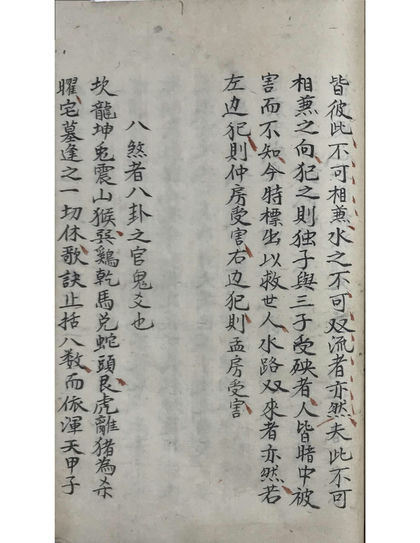 皆彼此不可相兼水之不可双流者亦然夫此不可
相兼之向犯之則独子與三子受殃者人皆暗中被
害而不知今特標出以救世人水路双來者亦然若
左边犯則仲房受害右边犯則孟房受害
八煞者八卦之官鬼爻也
坎龍坤兎震山猴巽鷄乾馬兑蛇頭艮虎離猪為杀
曜宅墓逢之一切休歌訣止括八数而依渾天甲子